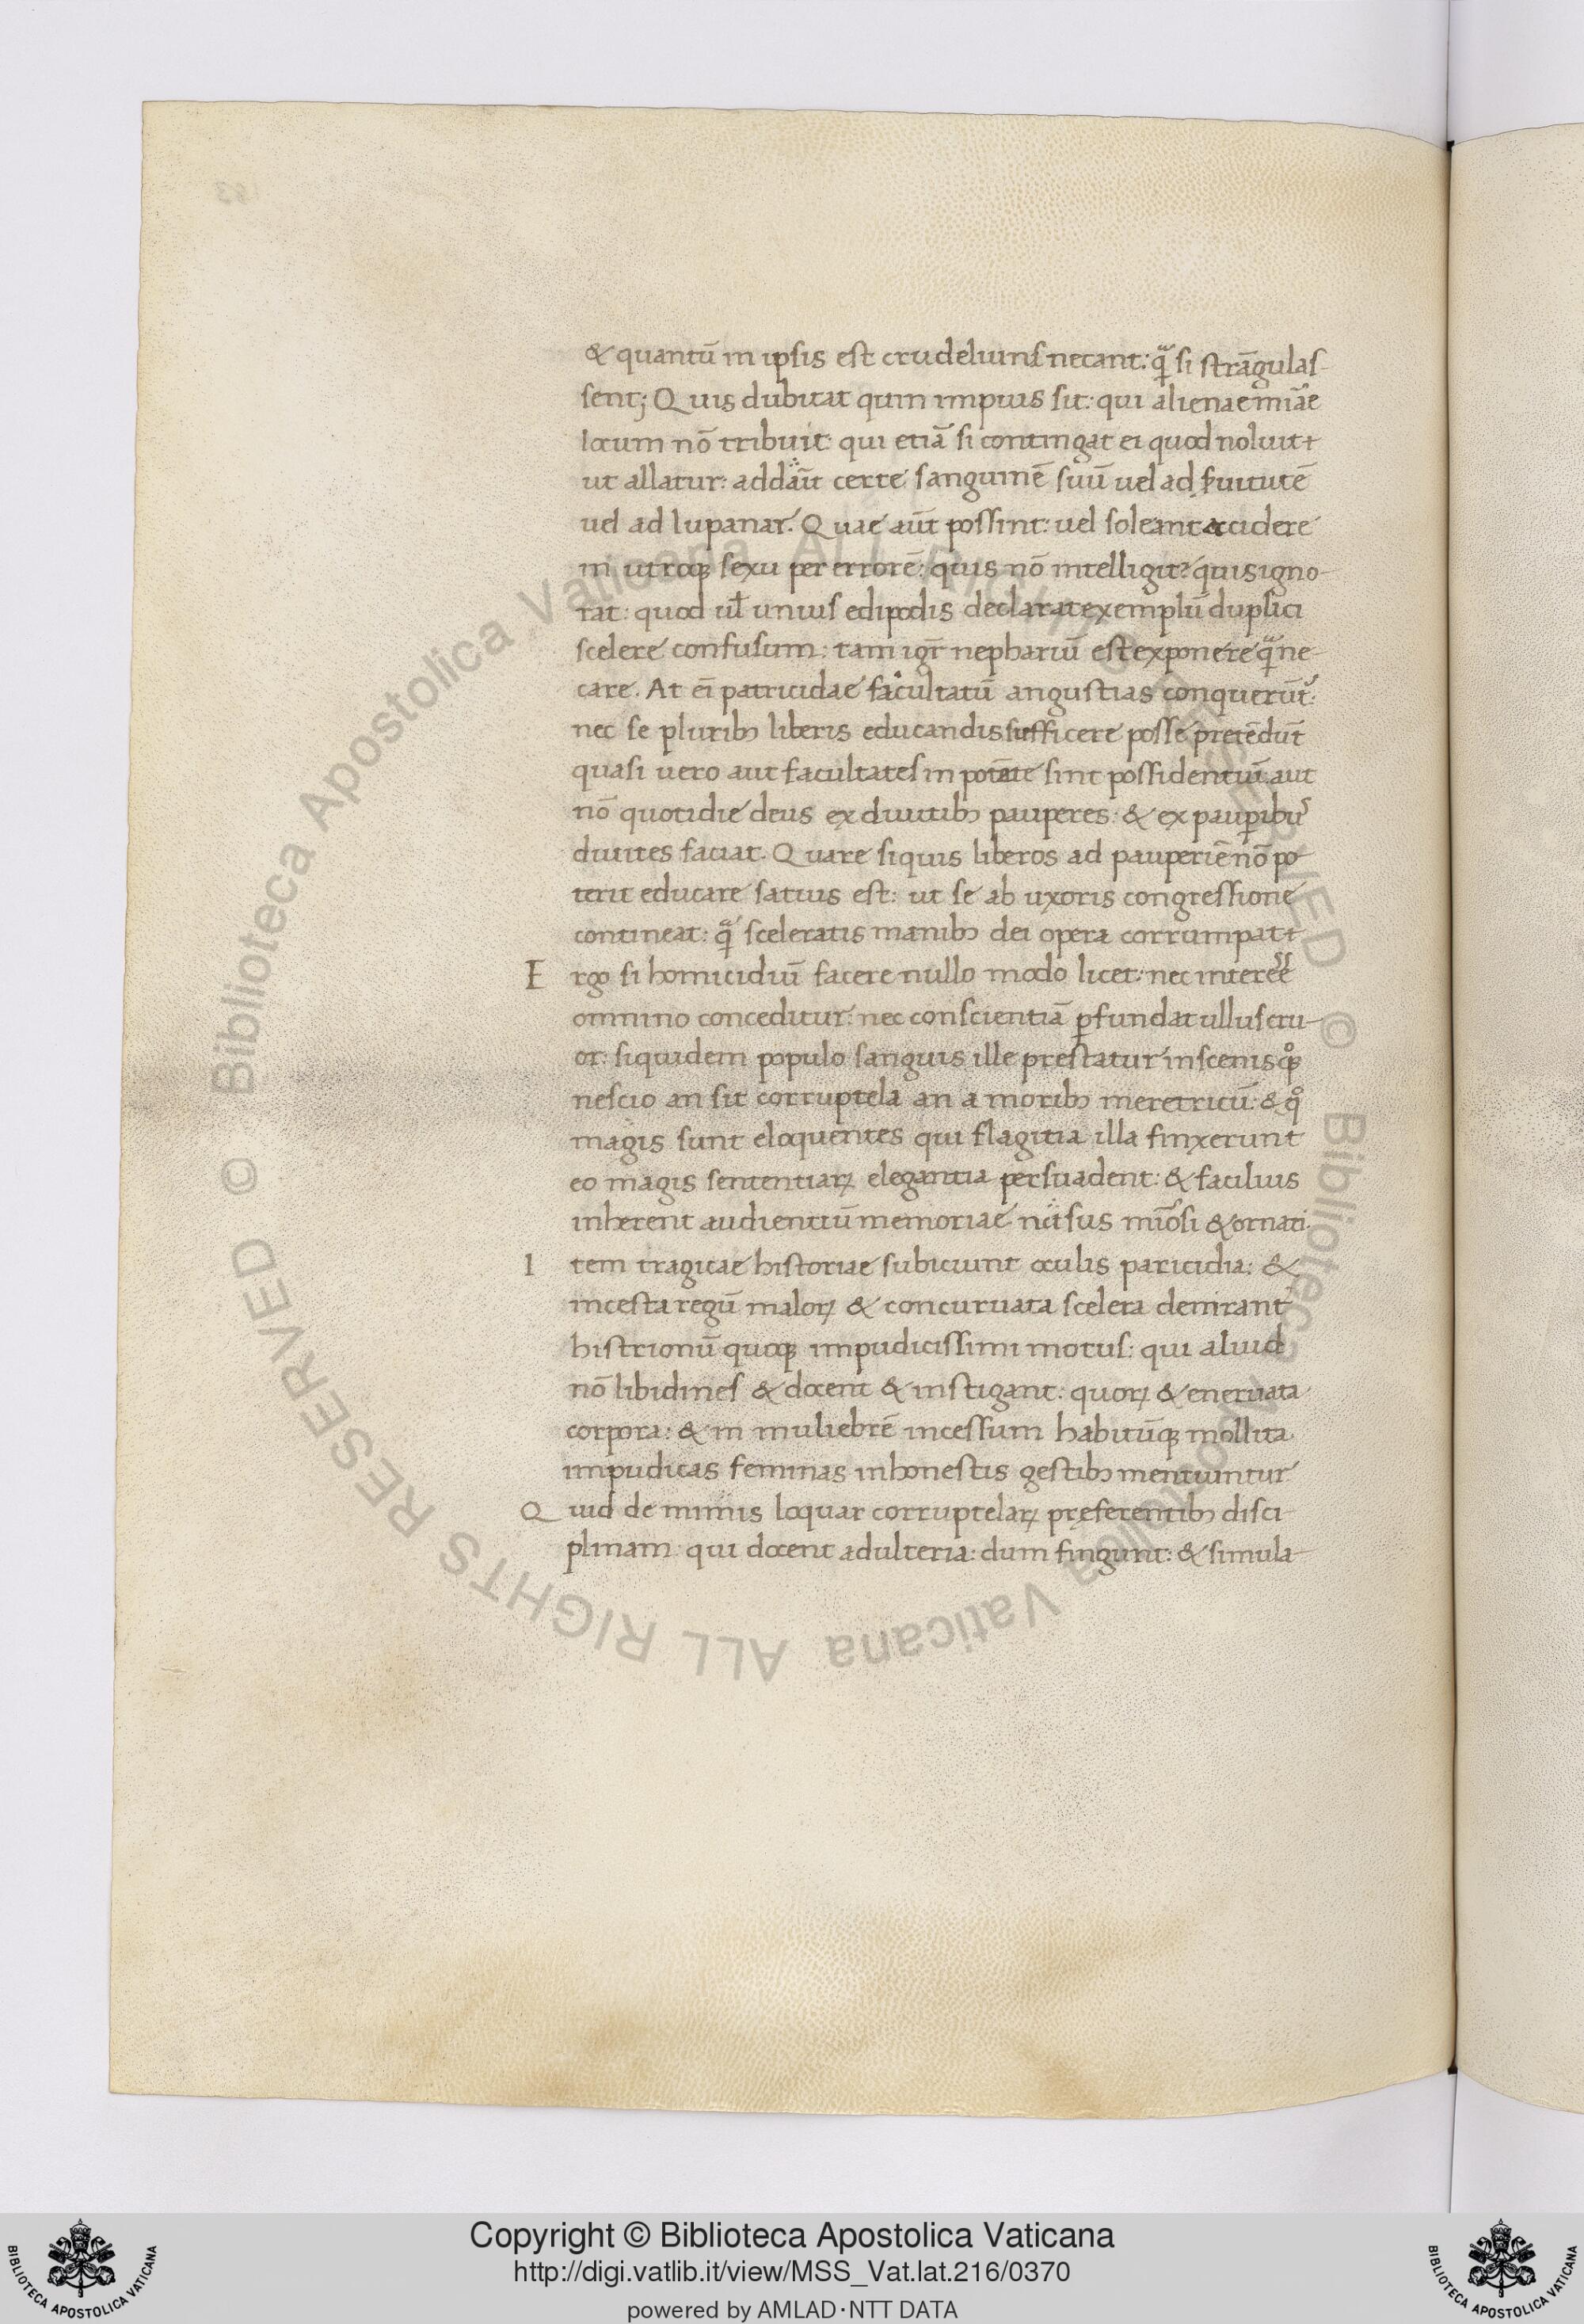 & quantū in ipsis est crudelius necant: q̄ si strāgulas-
sent; Quis dubitat quin impius sit: qui alienae mīāe
locum nō tribuit: qui etiā si contingat ei quod noluit
ut allatur: addāit certe sanguinē suū uel ad seruitutē
uel ad lupanar. Quae aūt possint: uel soleant accidere
in utroq; sexu per errorē: quis nō intelligit? quis igno-
rat: quod ul̄ unius edipodis declarat exemplū duplici
scelere confusum: tam igr̄ nephariū est exponere q̄ ne-
care. At eī patricidae facultatū angustias conquerūt:
nec se plurib; liberis educandis sufficere posse pretēdūt
quasi uero aut facultates in potāte sint possidentiū: aut
nō quotidie deus ex diuitib; pauperes: & ex pauperibus
diuites faciat. Quare siquis liberos ad pauperiē nō po-
terit educare satius est: ut se ab uxoris congressione
contineat: q̄ sceleratis manib; dei opera corrumpat
Ergo si homicidiū facere nullo modo licet: nec interēē
omnino conceditur: nec conscientiā perfundat ullus cru-
or: siquidem populo sanguis ille prestatur in scenis qͦq;
nescio an sit corruptela an a morib; meretricū: & qͦ
magis sunt eloquentes qui flagitia illa finxerunt
eo magis sententiaꝝ elegantia persuadent: & facilius
inherent audientiū memoriae uersus nūosi & ornati
Item tragicae historiae subiciunt oculis paricidia: &
incesta regū maloꝝ & concuruata scelera demirant
histrionū quoq; impudicissimi motus: qui aliud
nō libidines & docent & instigant: quoꝝ & eneruata
corpora: & in muliebrē incessum habitūq; mollita
impudicas feminas inhonestis gestib; mentiuntur
Quid de mimis loquar corruptelaꝝ pręferentib; disci-
plinam: qui docent adulteria: dum fingunt: & simula-
© Biblioteca Apostolica Vaticana ALL RIGHTS RESERVED © Biblioteca Apostolica Vaticana ALL RIGHTS RESERVED
Copyright © Biblioteca Apostolica Vaticana
http://digi.vatlib.it/view/MSS_Vat.lat.216/0370
powered by AMLAD·NTT DATA
BIBLIOTECA APOSTOLICA VATICANA
BIBLIOTECA APOSTOLICA VATICANA